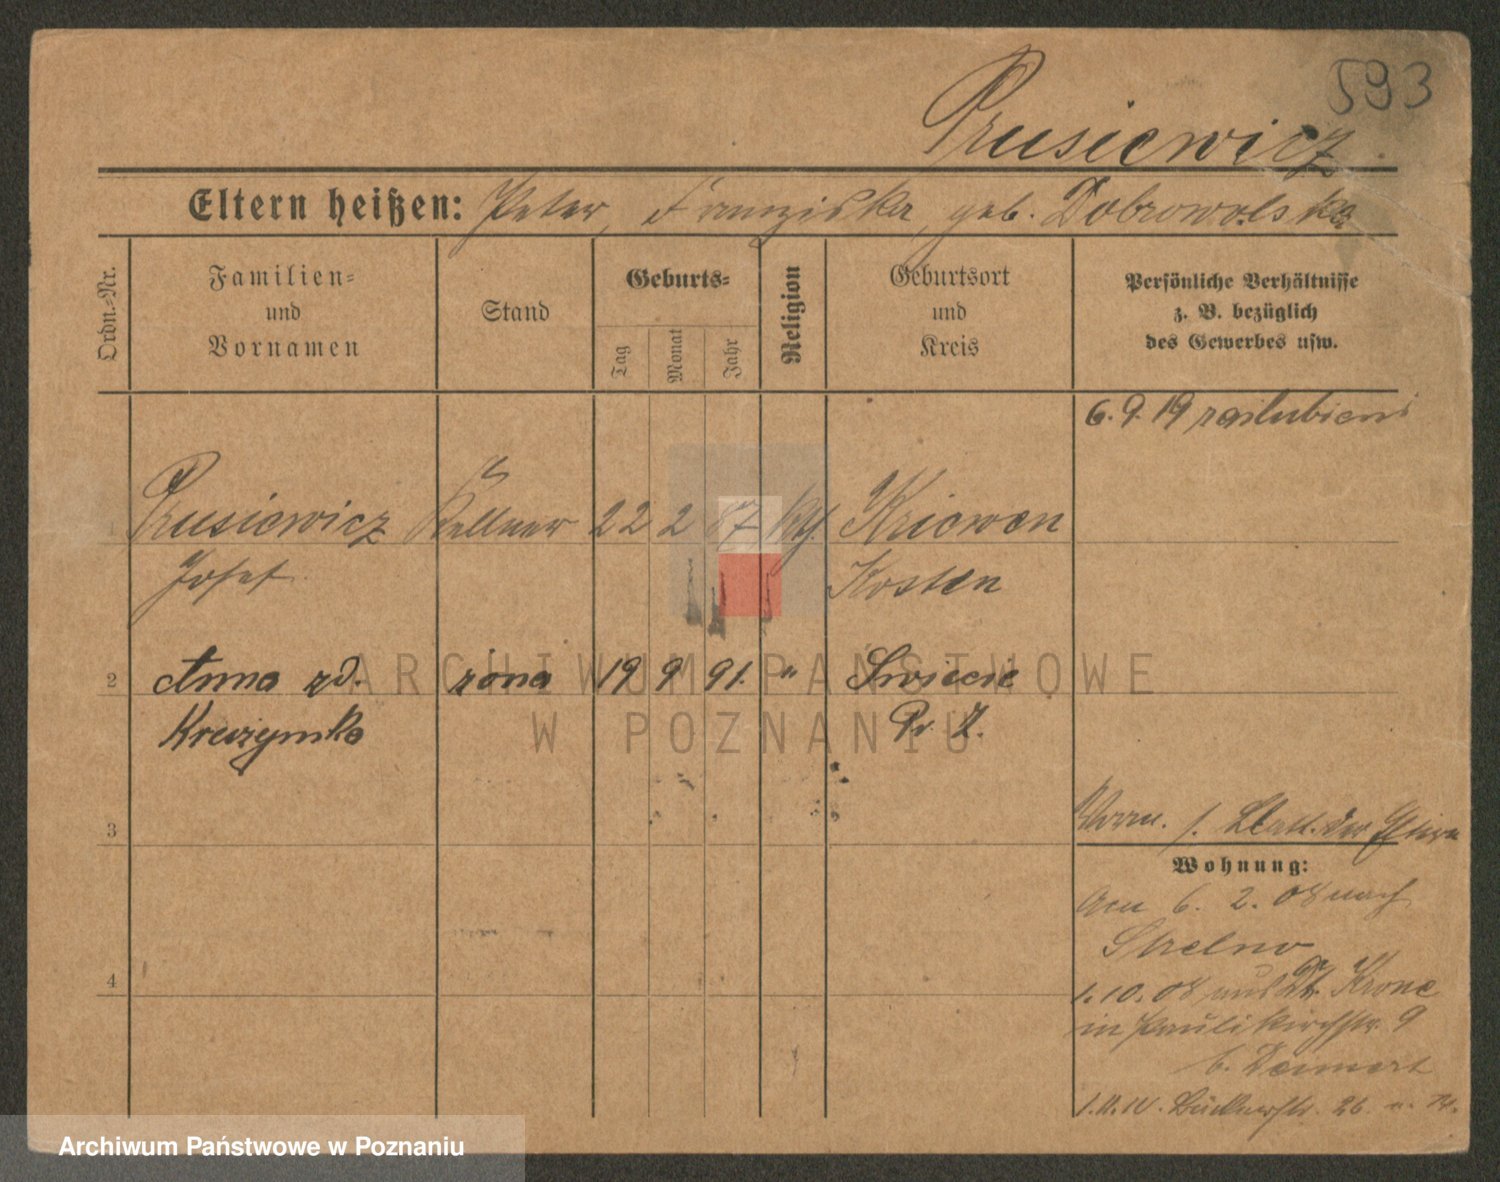 593
Prusiewicz
Eltern heißen: Peter, Franziska, geb. Dobrowolska
Ordn.-Nr.
Familien- und Vornamen
Stand
Geburts-
Tag
Monat
Jahr
Religion
Geburtsort und Kreis
Persönliche Verhältnisse
z. B. bezüglich
des Gewerbes usw.
6. 9. 19 zaślubieni
1 Prusiewicz Kellner 22 2 87 kth. Kriewen
Josef Kosten
2 Anna zd. żona 19 9 91. " Swiecie
Kreczymko Pr. Z.
3
Vorm. s. Blatt der Eltern
Wohnung:
Am 6. 2. 08 nach
Strelno
4
1. 10. 08 aus Dt. Krone
in Paulikirchstr. 9
b. Deimert
1. 11. 10. 26
ARCHIWUM PAŃSTWOWE
W POZNANIU
Archiwum Państwowe w Poznaniu